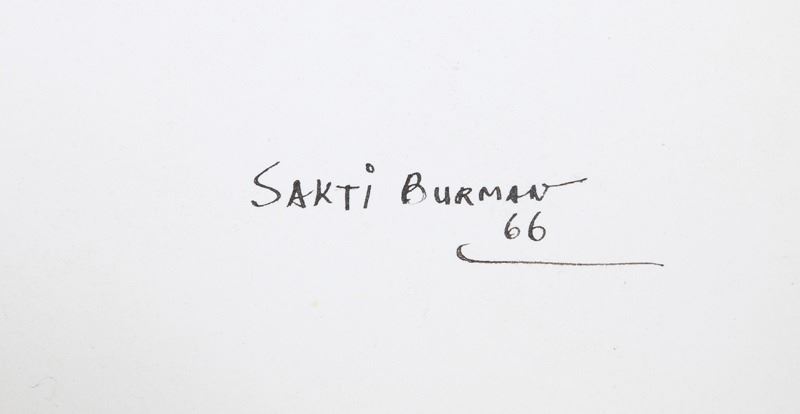 SAKTi BURMAN
66